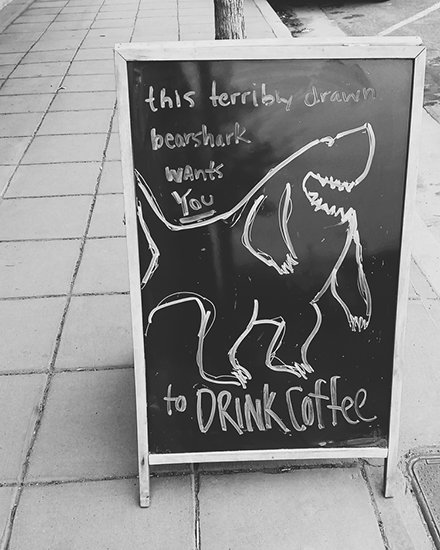 this terribly drawn
bearshark
wants
You
to DRINK Coffee